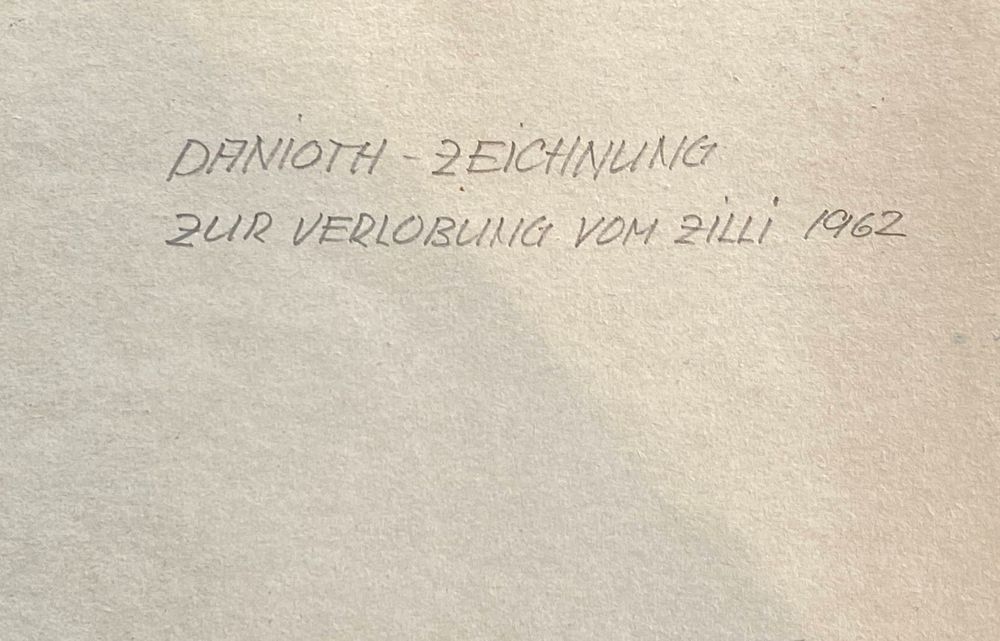 DANiOTH - ZEiCHNUNG
ZUR VERLOBUNG VOM ZiLLi 1962